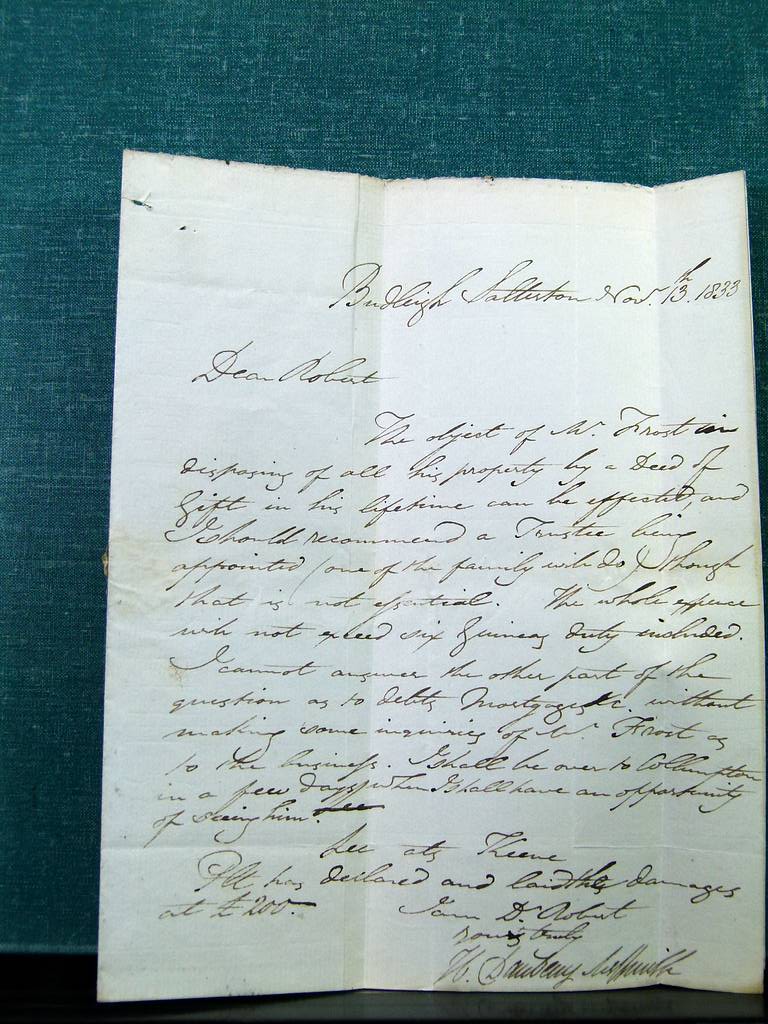 Budleigh Salterton Nov.r 13.th 1833
Dear Robert
The object of Mr. Frost in
disposing of all his property by a Deed of
Gift in his lifetime can be effected, and
I should recommend a Trustee being
appointed (one of the family will do) though
that is not essential. The whole expence
will not exceed six Guineas duty included.
I cannot answer the other part of the
question as to debts Mortgages &c. without
making some inquiries of Mr. Frost as
to the business. I shall be over to Collumpton
in a few days when I shall have an opportunity
of seeing him.
Lee ats Keene
Plt has declared and laid the damages
at £200.
I am Dr. Robert
yours truly